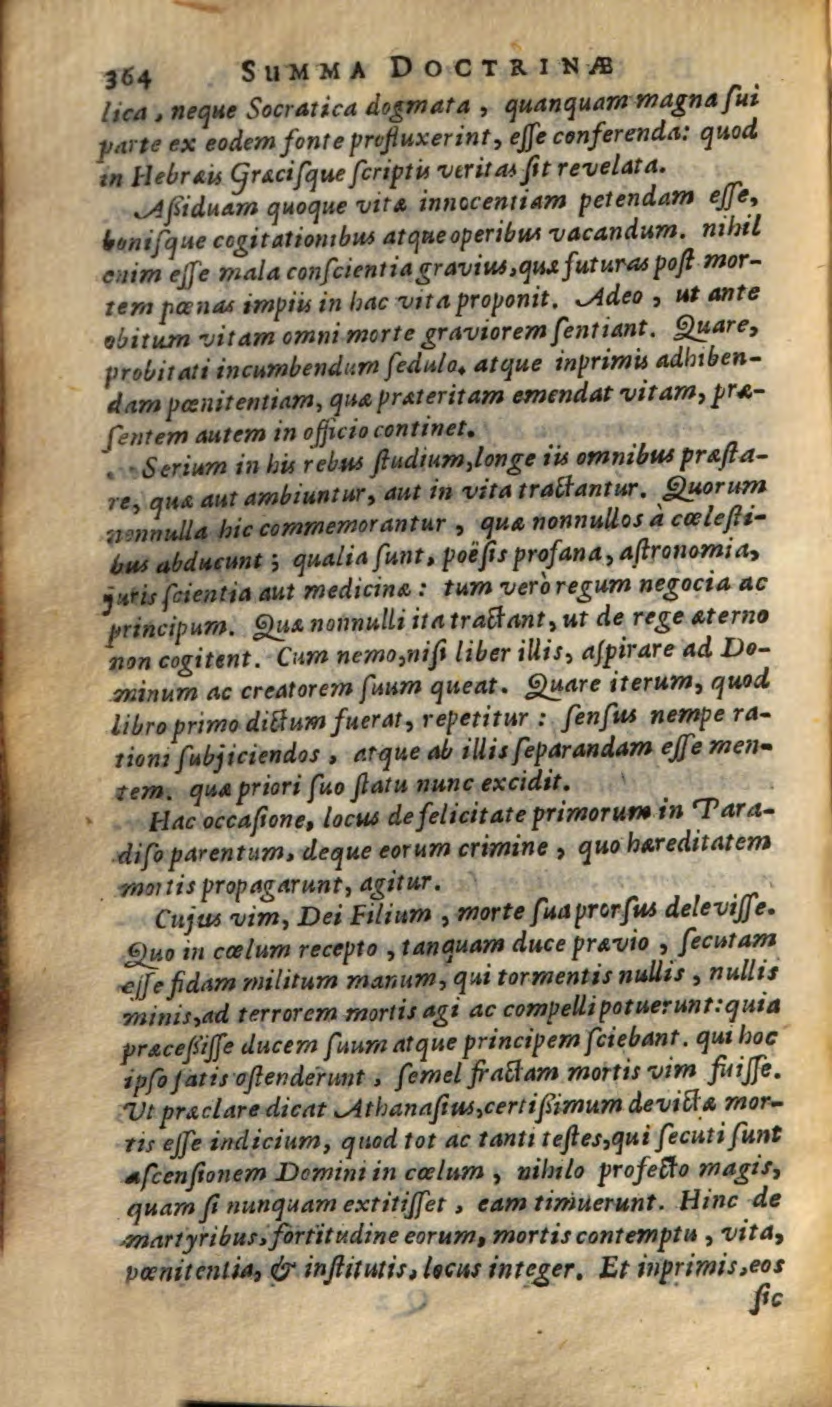 364 SUMMA DOCTRINÆ
lica, neque Socratica dogmata, quanquam magna ſui
parte ex eodem fonte profluxerint, eſſe conferenda: quod
in Hebræis Græciſque ſcriptis veritas ſit revelata.
Aſſiduam quoque vitæ innocentiam petendam eſſe,
boniſque cogitationibus atque operibus vacandum. nihil
enim eſſe mala conſcientia gravius, quæ futuras poſt mor-
tem pœnas impiis in hac vita proponit. Adeo, ut ante
obitum vitam omni morte graviorem ſentiant. Quare,
probitati incumbendum ſedulo, atque inprimis adhiben-
dam pœnitentiam, quæ præteritam emendat vitam, præ-
ſentem autem in officio continet.
Serium in his rebus ſtudium, longe iis omnibus præſta-
re, quæ aut ambiuntur, aut in vita tractantur. Quorum
nonnulla hic commemorantur, quæ nonnullos à cœleſti-
bus abducunt; qualia ſunt, poëſis profana, aſtronomia,
juris ſcientia aut medicinæ: tum verò regum negocia ac
principum. Quæ nonnulli ita tractant, ut de rege æterno
non cogitent. Cum nemo, niſi liber illis, aſpirare ad Do-
minum ac creatorem ſuum queat. Quare iterum, quod
libro primo dictum fuerat, repetitur: ſenſus nempe ra-
tioni ſubjiciendos, atque ab illis ſeparandam eſſe men-
tem. quæ priori ſuo ſtatu nunc excidit.
Hac occaſione, locus de felicitate primorum in Para-
diſo parentum, deque eorum crimine, quo hæreditatem
mortis propagarunt, agitur.
Cujus vim, Dei Filium, morte ſua prorſus deleviſſe.
Quo in cœlum recepto, tanquam duce prævio, ſecutam
eſſe fidam militum manum, qui tormentis nullis, nullis
minis, ad terrorem mortis agi ac compelli potuerunt: quia
præceſſiſſe ducem ſuum atque principem ſciebant. qui hoc
ipſo ſatis oſtenderunt, ſemel fractam mortis vim fuiſſe.
Ut præclare dicat Athanaſius, certiſſimum devictæ mor-
tis eſſe indicium, quod tot ac tanti teſtes, qui ſecuti ſunt
aſcenſionem Domini in cœlum, nihilo profecto magis,
quam ſi nunquam extitiſſet, eam timuerunt. Hinc de
martyribus, fortitudine eorum, mortis contemptu, vita,
pœnitentia, & inſtitutis, locus integer. Et inprimis, eos
ſic